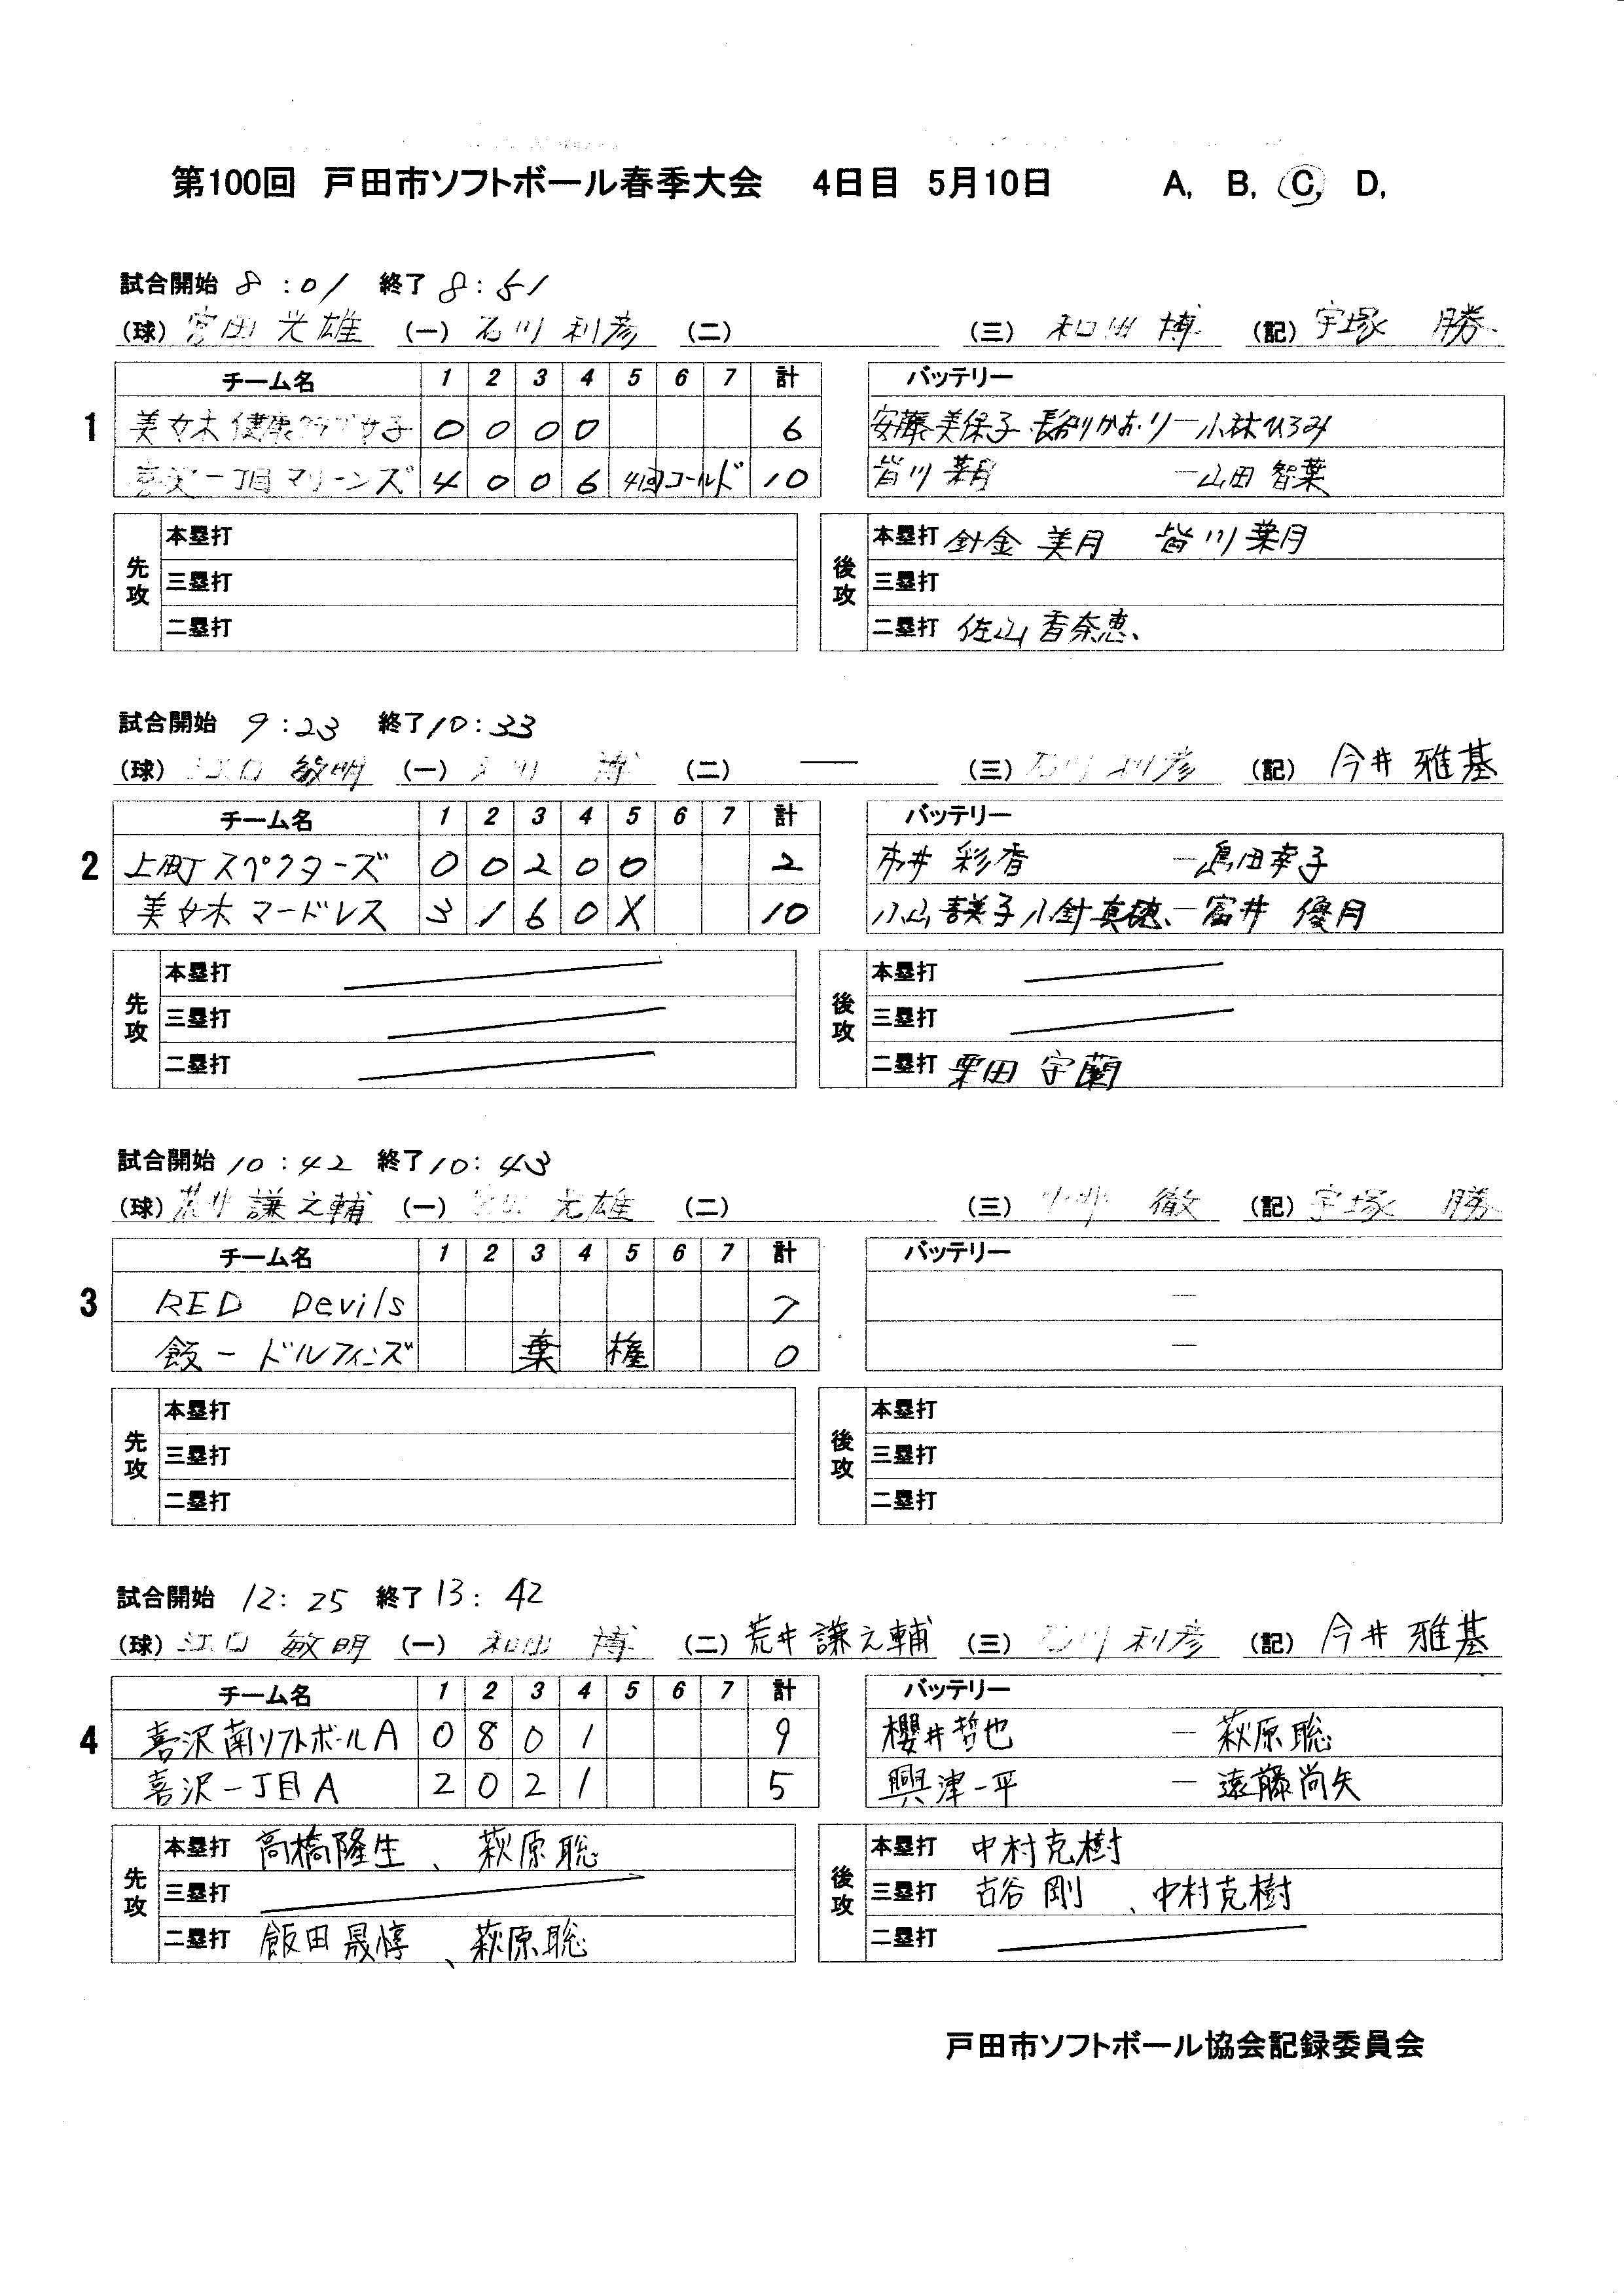 第100回 戸田市ソフトボール春季大会 4日目 5月10日 A, B, C, D,
試合開始 8:01 終了 8:51
(球) 宮田 光雄 (一) 石川 利彦 (二) (三) 和田 博 (記) 宇塚 勝
チーム名 1 2 3 4 5 6 7 計 バッテリー
1 美女木健康クラブ女子 0 0 0 0 6 安藤美保子 長谷川かおり ー 小林ひろみ
喜沢一丁目マリーンズ 4 0 0 6 4回コールド 10 皆川 葉月 ー 山田 智葉
先攻 本塁打
三塁打
二塁打
後攻 本塁打 針金 美月 皆川 葉月
三塁打
二塁打 佐山 香奈恵、
試合開始 9:23 終了 10:33
(球) 江口 敏明 (一) 博 (二) ー (三) 石川 利彦 (記) 今井 雅基
チーム名 1 2 3 4 5 6 7 計 バッテリー
2 上町スペクターズ 0 0 2 0 0 2 彩香 ー 島田幸子
美女木 マードレス 3 1 6 0 X 10 小山 小針真穂 ー 富井 優月
先攻 本塁打
三塁打
二塁打
後攻 本塁打
三塁打
二塁打 栗田 宇蘭
試合開始 10:42 終了 10:43
(球) 荒井 謙之輔 (一) 宮田 光雄 (二) (三) 徹 (記) 宇塚 勝
チーム名 1 2 3 4 5 6 7 計 バッテリー
3 RED Devils 7 ー
飯一ドルフィンズ 棄 権 0 ー
先攻 本塁打
三塁打
二塁打
後攻 本塁打
三塁打
二塁打
試合開始 12:25 終了 13:42
(球) 江口 敏明 (一) 和田 博 (二) 荒井謙之輔 (三) 石川 利彦 (記) 今井 雅基
チーム名 1 2 3 4 5 6 7 計 バッテリー
4 喜沢南ソフトボールA 0 8 0 1 9 櫻井哲也 ー 萩原聡
喜沢一丁目A 2 0 2 1 5 興津一平 ー 遠藤尚矢
先攻 本塁打 高橋隆生、萩原聡
三塁打
二塁打 飯田晟惇、萩原聡
後攻 本塁打 中村克樹
三塁打 古谷 剛、中村克樹
二塁打
戸田市ソフトボール協会記録委員会